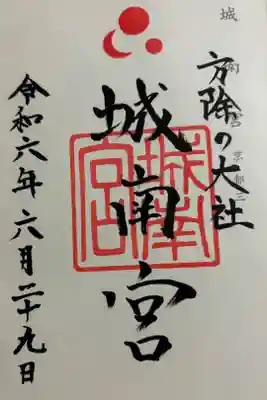 方除の大社
城南宮
令和六年六月二十九日
城南宮印